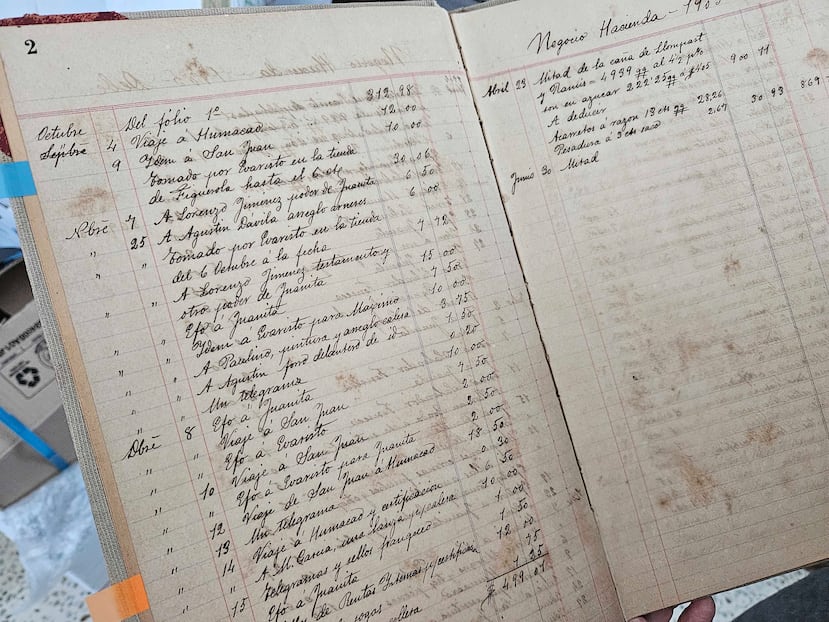 2
Del fólio 1º 312.98
Octubre 4 Viaje á Humacao 12.00
Sepbre 9 Idem á San Juan 10.00
Tomado por Evaristo en la tienda
de Figuerola hasta el 6 30.06
Nbre 7 A Lorenzo Jimenez poder de Juanita 6.50
" 25 A Agustin Davila arreglo arneses 6.00
" " Tomado por Evaristo en la tienda
del 6 Octubre á la fecha 7.72
" " A Lorenzo Jimenez testamento y
otro poder de Juanita 15.00
" " Efo á Juanita 7.50
" " Idem á Evaristo para Maximo 10.00
" " A Paulino, pintura y arreglo calesa 3.75
" " A Agustin forro delantero de id 1.50
" " Un telegrama 0.20
" " Efo á Juanita 10.00
Dbre 8 Viaje á San Juan 7.50
" " Efo á Evaristo 2.00
" 10 Viaje á San Juan 2.50
" " Efo á Evaristo para Juanita 2.00
" " Viaje de San Juan á Humacao 18.50
" 12 Un telegrama 0.30
" 13 Viaje á Humacao y certificacion 6.50
" 14 A M. Garcia, una lanza pa calesa 10.00
" " Telegramas y sellos franqueo 1.00
" 15 Efo á Juanita 1.50
de Rentas Internas y certifica 12.00
sogas 75
calesa 1.25
$ 499.01
Negocio Hacienda - 190
Abril 23 Mitad de la caña de Llompart
y Ramis = 4939 qq al 4½ p%
son en azucar 222.25 qq á $4.05 900 11
A deducir
Acarretos á razon 13 cts qq 28.26
Pesadura á 3 cts saco 2.67 30 93 869
Junio 30 Mitad